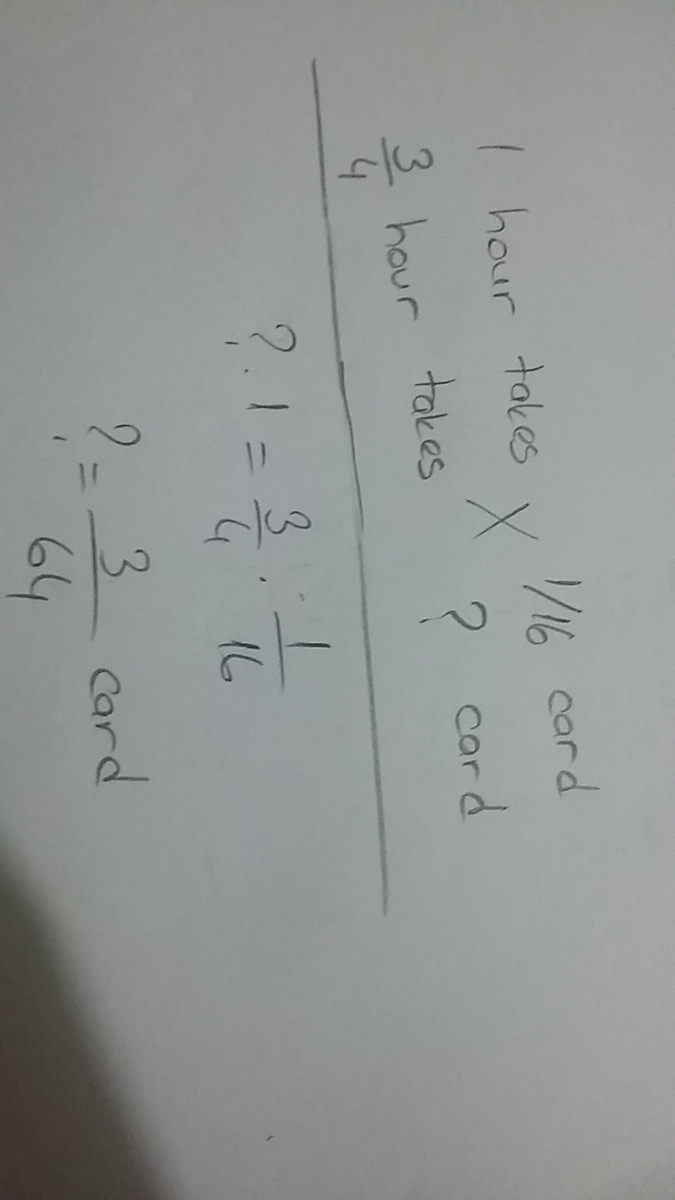 1 hour takes X 1/16 card
3/4 hour takes ? card
? . 1 = 3/4 . 1/16
? = 3/64 card